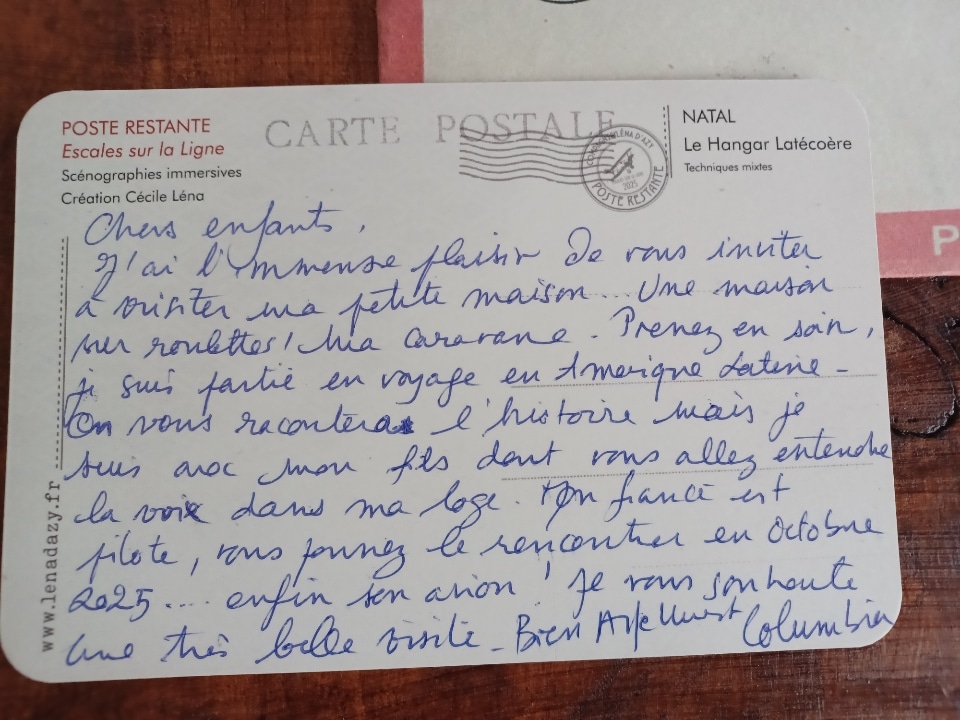 POSTE RESTANTE
Escales sur la Ligne
Scénographies immersives
Création Cécile Léna
CARTE POSTALE
COMPAGNIE LÉNA D'AZY
2025
POSTE RESTANTE
NATAL
Le Hangar Latécoère
Techniques mixtes
P
Chers enfants,
J'ai l'immense plaisir de vous inviter
à visiter ma petite maison... Une maison
sur roulettes! Ma caravane. Prenez en soin,
je suis partie en voyage en Amérique Latine -
On vous racontera l'histoire mais je
suis avec mon fils dont vous allez entendre
la voix dans ma loge. Mon fiancé est
pilote, vous pourrez le rencontrer en Octobre
2025.... enfin son avion! Je vous souhaite
une très belle visite - Bien Affectueusement Columbia
www.lenadazy.fr